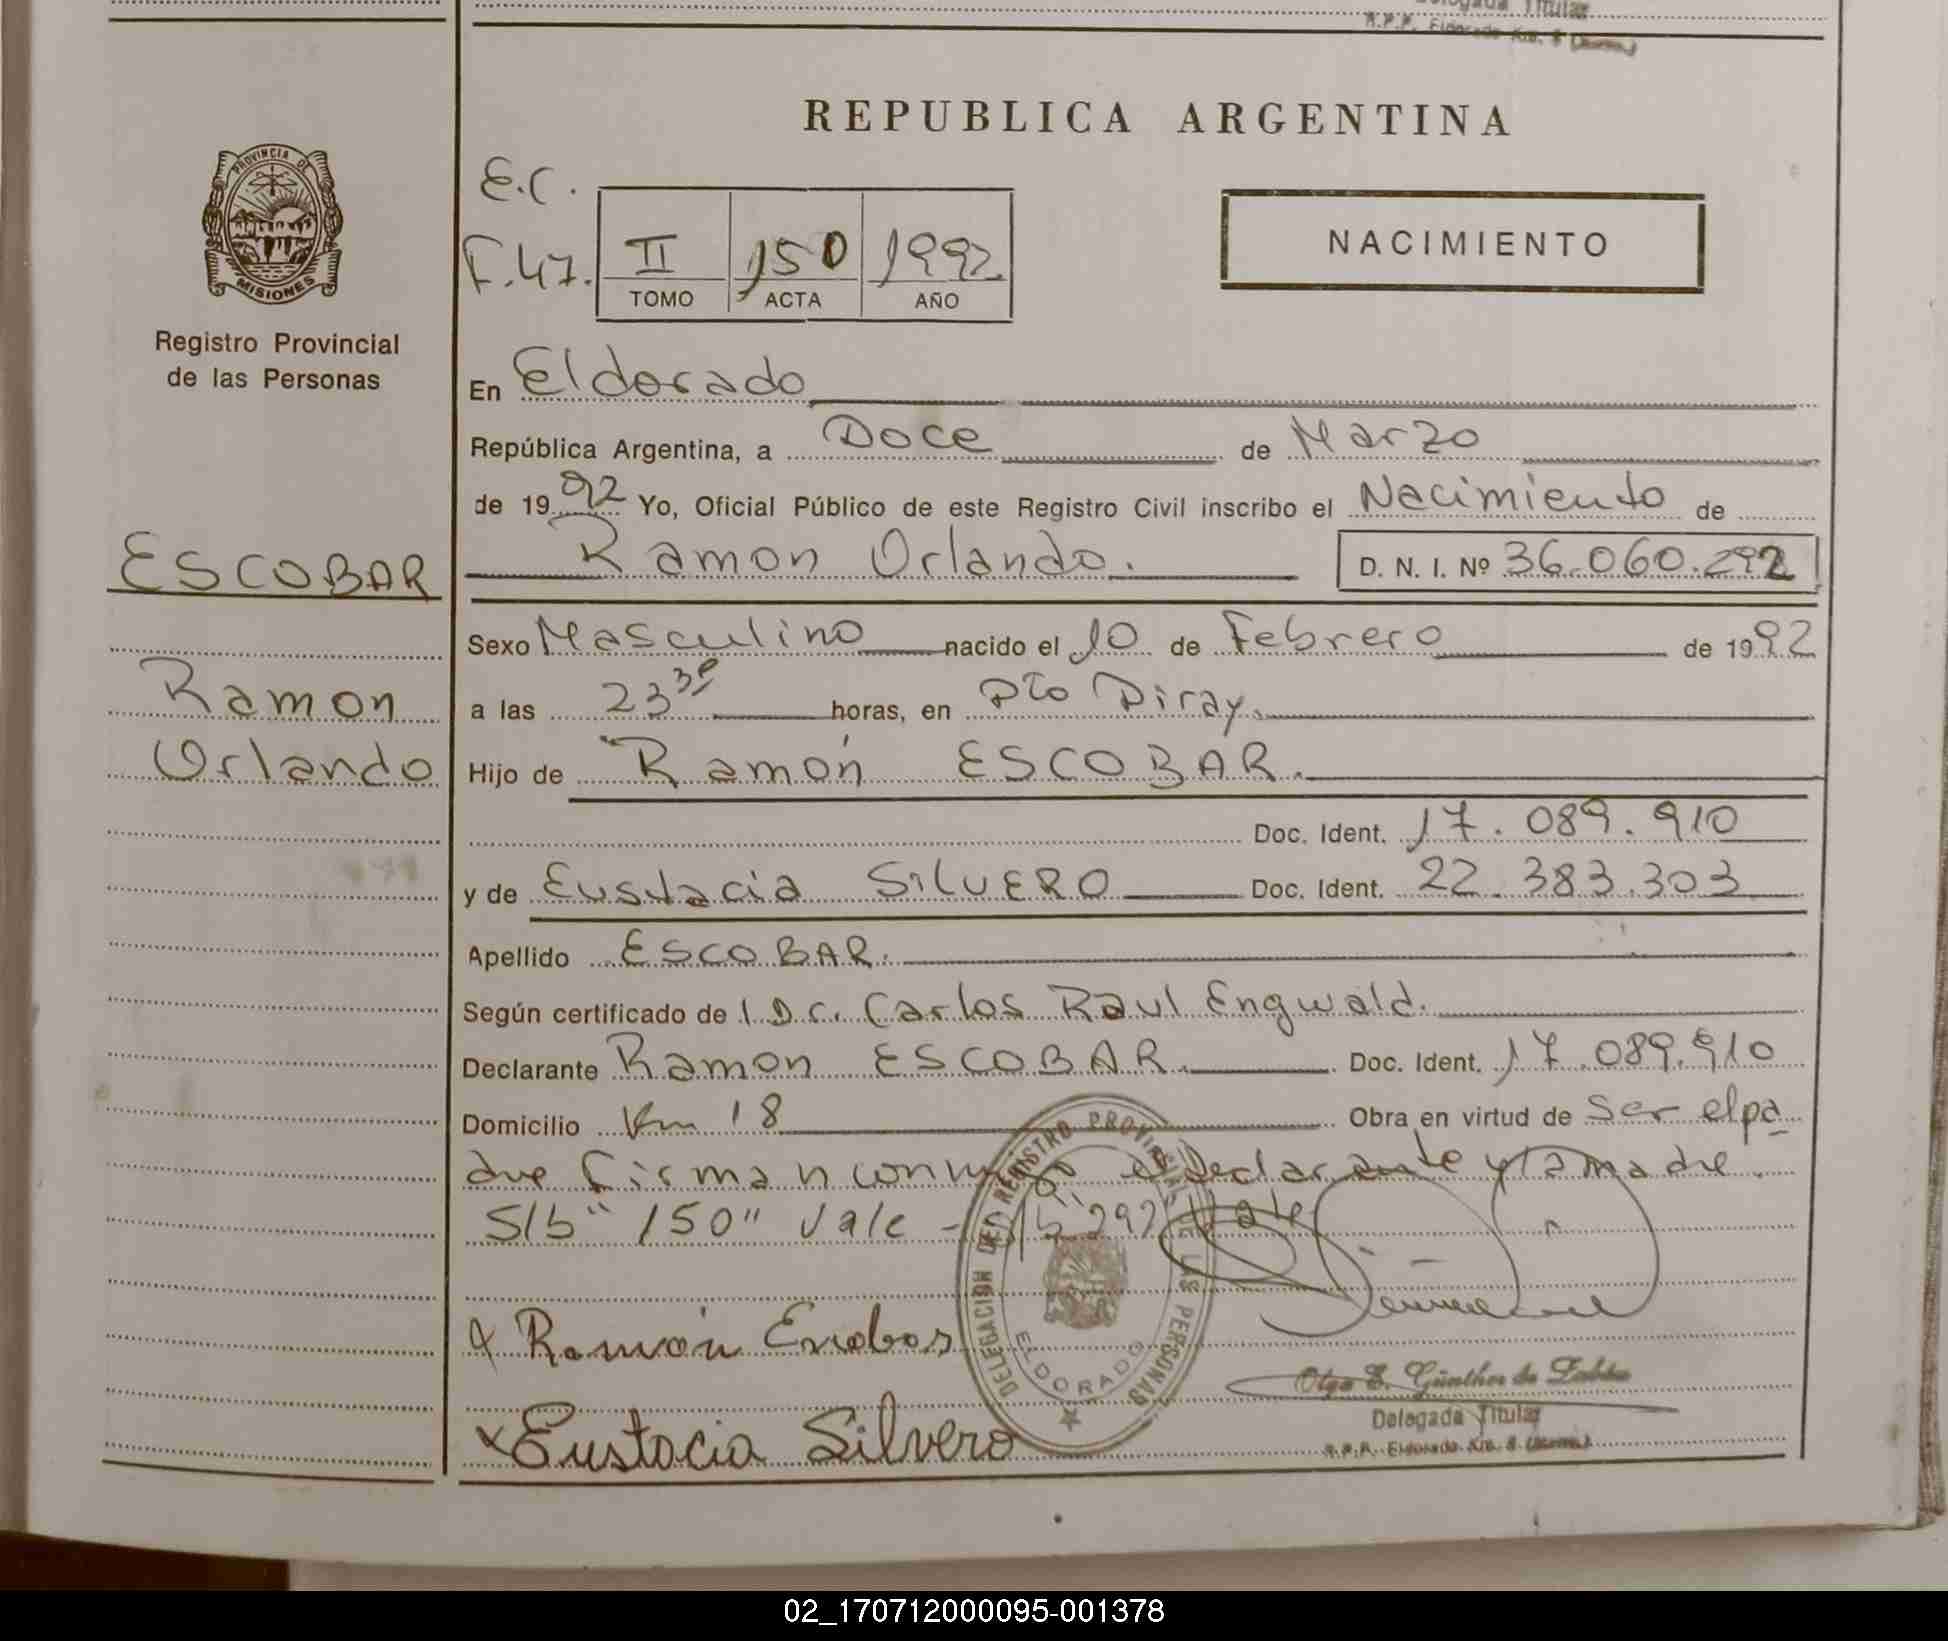 Delegada Titular
R.P.P. Eldorado Km. 8 (Mnes.)
REPUBLICA ARGENTINA
PROVINCIA DE MISIONES
Registro Provincial
de las Personas
E.C.
F.47. II 150 1992
TOMO ACTA AÑO
NACIMIENTO
En Eldorado
República Argentina, a Doce de Marzo
de 1992 Yo, Oficial Público de este Registro Civil inscribo el Nacimiento de
Ramon Orlando. D. N. I. Nº 36.060.292
ESCOBAR
Ramon
Orlando
Sexo Masculino nacido el 10 de Febrero de 1992
a las 23 30 horas, en Pto Piray.
Hijo de Ramón ESCOBAR.
Doc. Ident. 17.089.910
y de Eustacia SILVERO Doc. Ident. 22.383.303
Apellido ESCOBAR.
Según certificado de l Dr. Carlos Raul Engwald.
Declarante Ramon ESCOBAR. Doc. Ident. 17.089.910
Domicilio Km 18 Obra en virtud de Ser el pa
dre firman conmigo el Declarante y la madre.
S/b "150" Vale - S/b "292" Vale
DELEGACION DEL REGISTRO PROVINCIAL DE LAS PERSONAS
ELDORADO
x Ramón Escobar
x Eustacia Silvero
Olga E. Günther de
Delegada Titular
R.P.P. Eldorado Km. 8 (Mnes.)
02_170712000095-001378